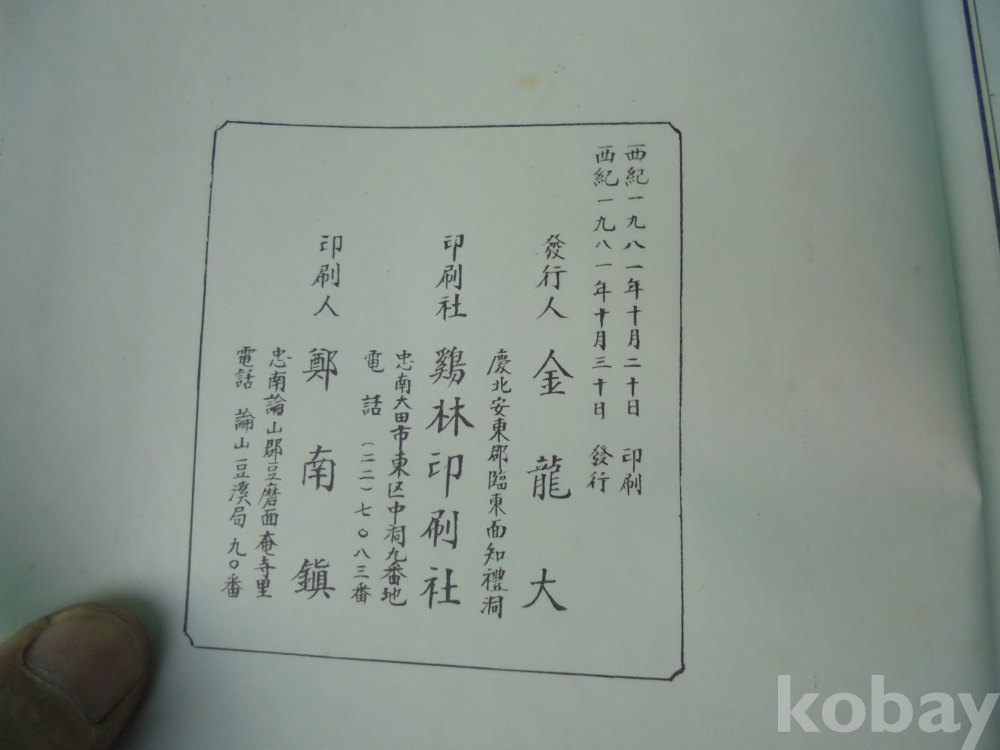 西紀一九八一年十月二十日 印刷
西紀一九八一年十月三十日 發行
發行人 金龍大
慶北安東郡臨東面知禮洞
印刷社 鷄林印刷社
忠南大田市東区中洞九番地
電話 (二二)七〇八三番
印刷人 鄭南鎭
忠南論山郡豆磨面奄寺里
電話 論山豆溪局九〇番
kobay